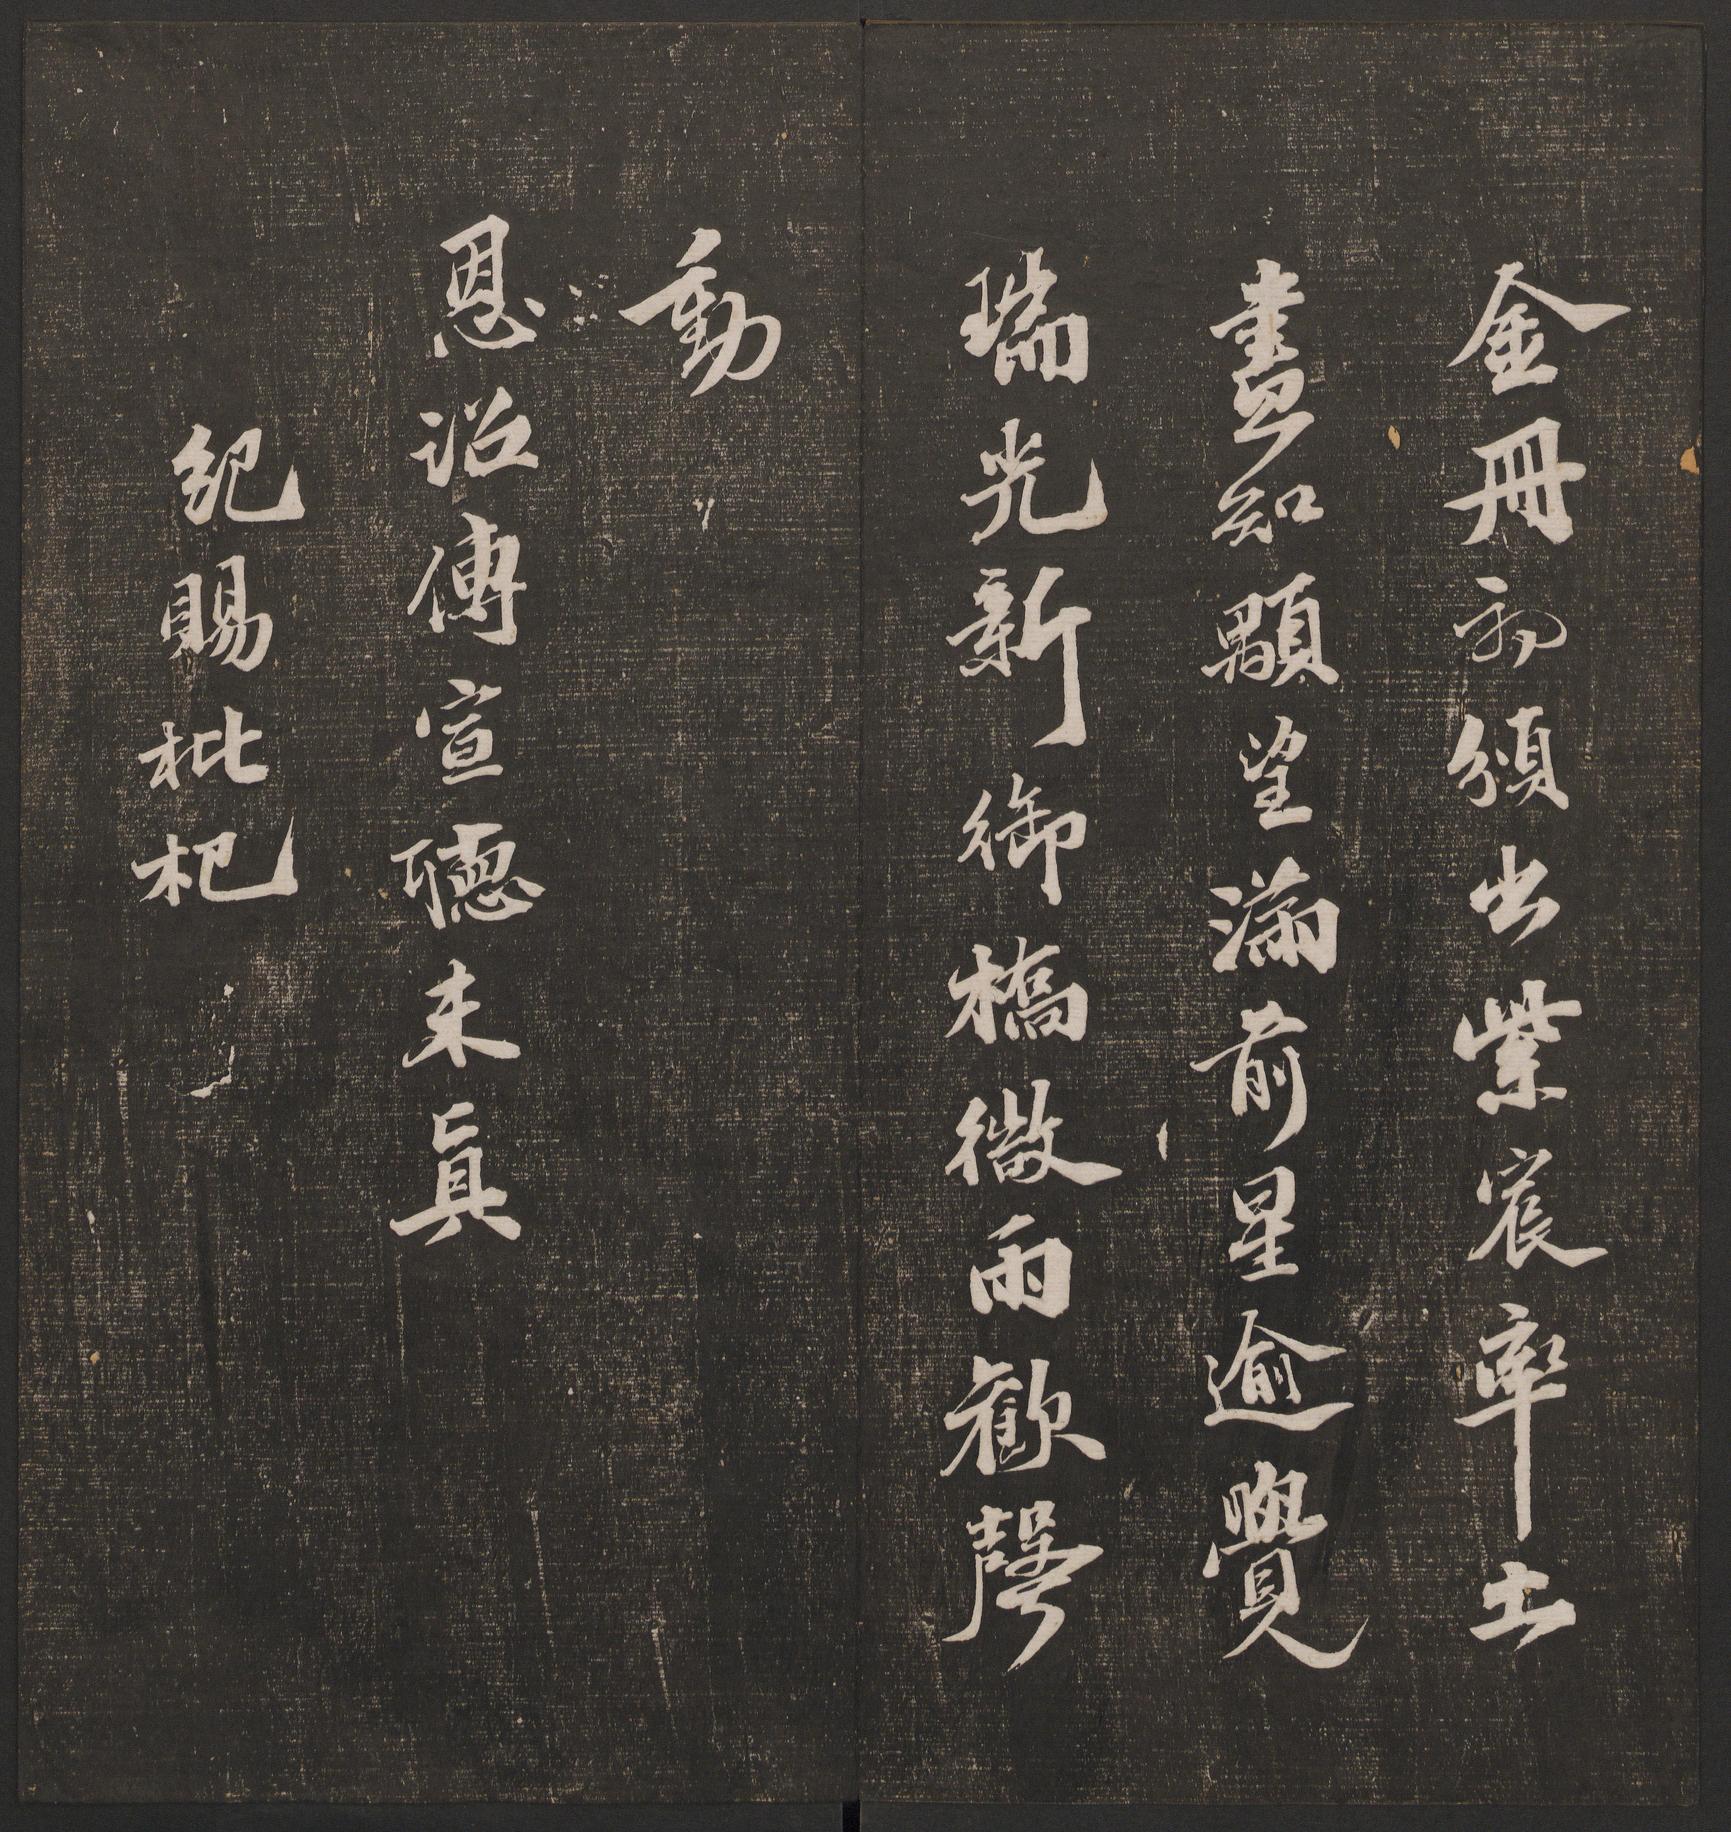 金冊初頒出紫宸率土
盡知顒望滿前星逾覺
瑞光新御橋微雨歡聲
動
恩詔傳宣聽未真
紀賜枇杷